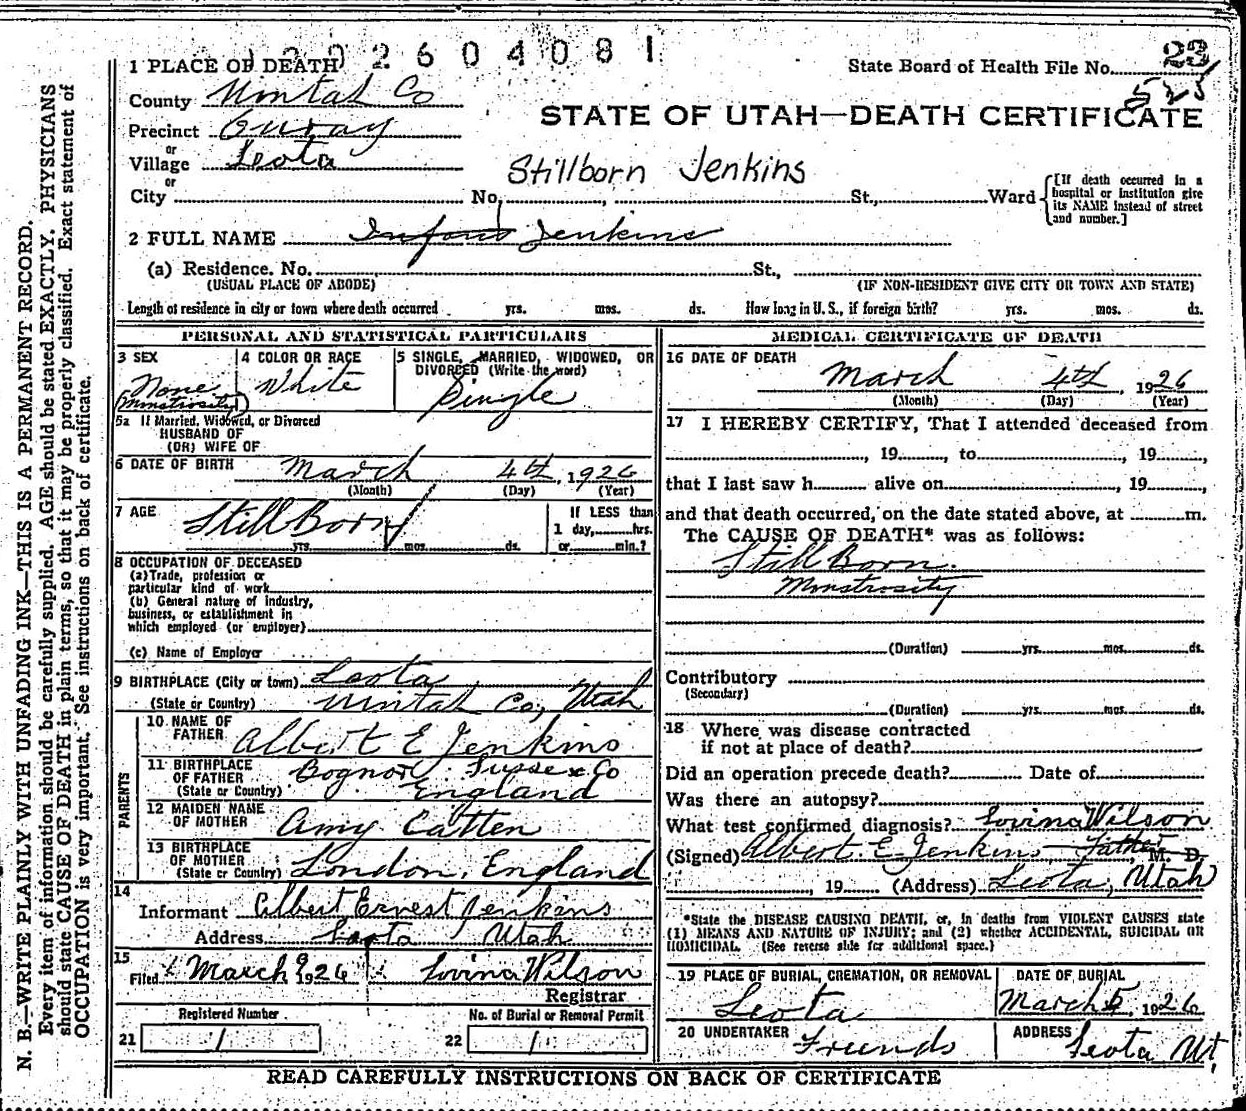 202604081
23
525
1 PLACE OF DEATH
State Board of Health File No.
County Uintah Co
STATE OF UTAH—DEATH CERTIFICATE
Precinct Ouray
or
Village Leota
or
Stillborn Jenkins
City No. St., Ward
[If death occurred in a hospital or institution give its NAME instead of street and number.]
2 FULL NAME Infant Jenkins
(a) Residence. No. St.,
(USUAL PLACE OF ABODE) (IF NON-RESIDENT GIVE CITY OR TOWN AND STATE)
Length of residence in city or town where death occurred yrs. mos. ds. How long in U. S., if foreign birth? yrs. mos. ds.
PERSONAL AND STATISTICAL PARTICULARS
3 SEX
None
(Monstrosity)
4 COLOR OR RACE
White
5 SINGLE, MARRIED, WIDOWED, OR
DIVORCED (Write the word)
Single
5a If Married, Widowed, or Divorced
HUSBAND OF
(OR) WIFE OF
6 DATE OF BIRTH March 4th, 1926
(Month) (Day) (Year)
7 AGE Still Born
yrs. mos. ds.
If LESS than
1 day, hrs.
or min.?
8 OCCUPATION OF DECEASED
(a) Trade, profession or
particular kind of work
(b) General nature of industry,
business, or establishment in
which employed (or employer)
(c) Name of Employer
9 BIRTHPLACE (City or town) Leota
(State or Country) Uintah Co, Utah
PARENTS
10 NAME OF
FATHER Albert E Jenkins
11 BIRTHPLACE
OF FATHER Bognor. Sussex Co
(State or Country) England
12 MAIDEN NAME
OF MOTHER Amy Catten
13 BIRTHPLACE
OF MOTHER
(State or Country) London, England
14
Informant Albert Ernest Jenkins
Address Leota Utah
15
Filed March 9 1926 Lovina Wilson
Registrar
Registered Number No. of Burial or Removal Permit
21 1 22 1
MEDICAL CERTIFICATE OF DEATH
16 DATE OF DEATH
March 4th 1926
(Month) (Day) (Year)
17 I HEREBY CERTIFY, That I attended deceased from
, 19 , to , 19 ,
that I last saw h alive on , 19 ,
and that death occurred, on the date stated above, at m.
The CAUSE OF DEATH* was as follows:
Still Born.
Monstrosity
(Duration) yrs. mos. ds.
Contributory
(Secondary)
(Duration) yrs. mos. ds.
18 Where was disease contracted
if not at place of death?
Did an operation precede death? Date of
Was there an autopsy?
What test confirmed diagnosis? Lovina Wilson
(Signed) Albert. E. Jenkins, Father, M. D.
, 19 (Address) Leota, Utah
*State the DISEASE CAUSING DEATH, or, in deaths from VIOLENT CAUSES state
(1) MEANS AND NATURE OF INJURY; and (2) whether ACCIDENTAL, SUICIDAL OR
HOMICIDAL. (See reverse side for additional space.)
19 PLACE OF BURIAL, CREMATION, OR REMOVAL
Leota
DATE OF BURIAL
March 5, 1926
20 UNDERTAKER
Friends
ADDRESS
Leota Ut,
READ CAREFULLY INSTRUCTIONS ON BACK OF CERTIFICATE
N. B.—WRITE PLAINLY WITH UNFADING INK—THIS IS A PERMANENT RECORD.
Every item of information should be carefully supplied. AGE should be stated EXACTLY. PHYSICIANS
should state CAUSE OF DEATH in plain terms, so that it may be properly classified. Exact statement of
OCCUPATION is very important. See instructions on back of certificate.